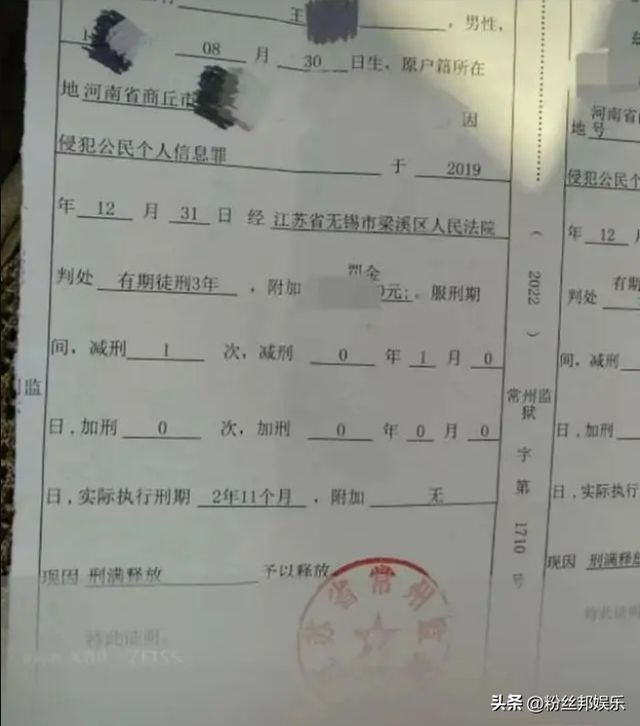 王 ，男性，
1 08 月 30 日生，原户籍所在
地 河南省商丘市
因
侵犯公民个人信息罪 于 2019
年 12 月 31 日 经 江苏省无锡市梁溪区人民法院
罚金
判处 有期徒刑3年 ，附加 0元;。服刑期
间，减刑 1 次，减刑 0 年 1 月 0
日，加刑 0 次，加刑 0 年 0 月 0
日，实际执行刑期 2年11个月 ，附加 无
现因 刑满释放 予以释放
特此证明。
监
（2022）
常州监狱
字第1710号
河南省
地 号
侵犯公民个
年 12
有期
判处
间，减刑
日，加刑
日，实际执
现因 刑满释放
特此证明
苏省常州监
ZEISS
头条 @粉丝邦娱乐